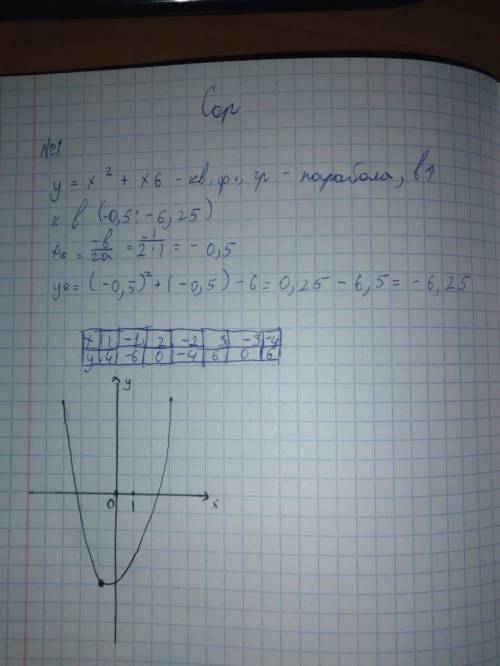 Сор
№1
y = x² + x6 - кв. ф., гр - парабола, в↑
к в (-0,5; -6,25)
= -в/2a = -1/2·1 = - 0,5
= (-0,5)² + (-0,5) - 6 = 0,25 - 6,5 = -6,25
x 1 -1 2 -2 3 -3 -4
y -4 -6 0 -4 6 0 6
y
0 1 x